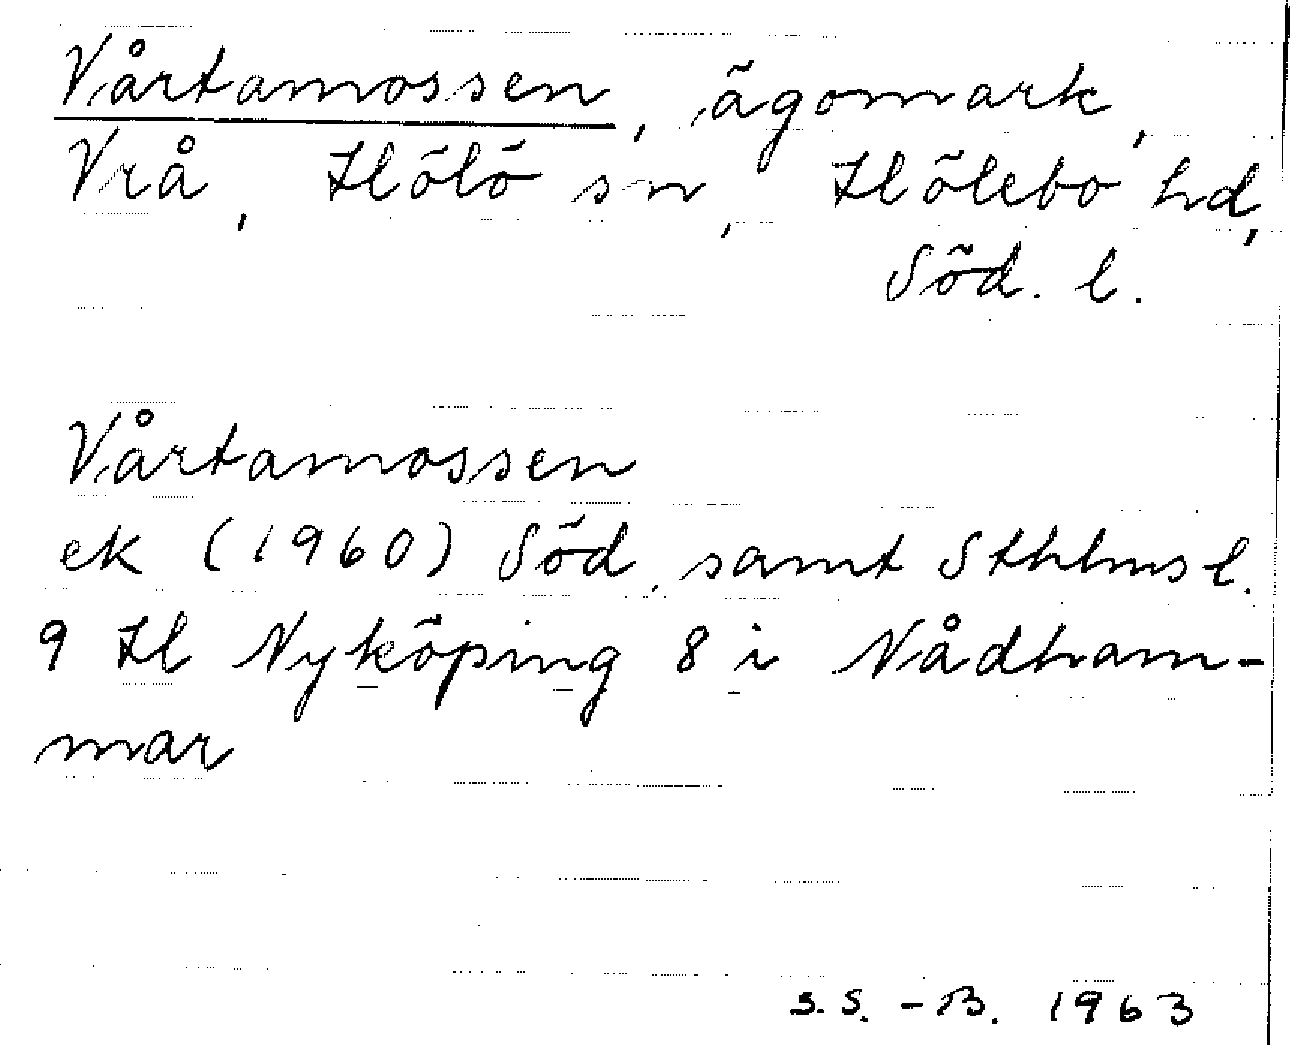 Vårtamossen, ägomark,
Vrå, Hölö sn, Hölebo hd,
Söd. l.
Vårtamossen
ek (1960) Söd. samt Sthlms l.
9 H Nyköping 8 i Nådham-
mar
S.S. -B. 1963